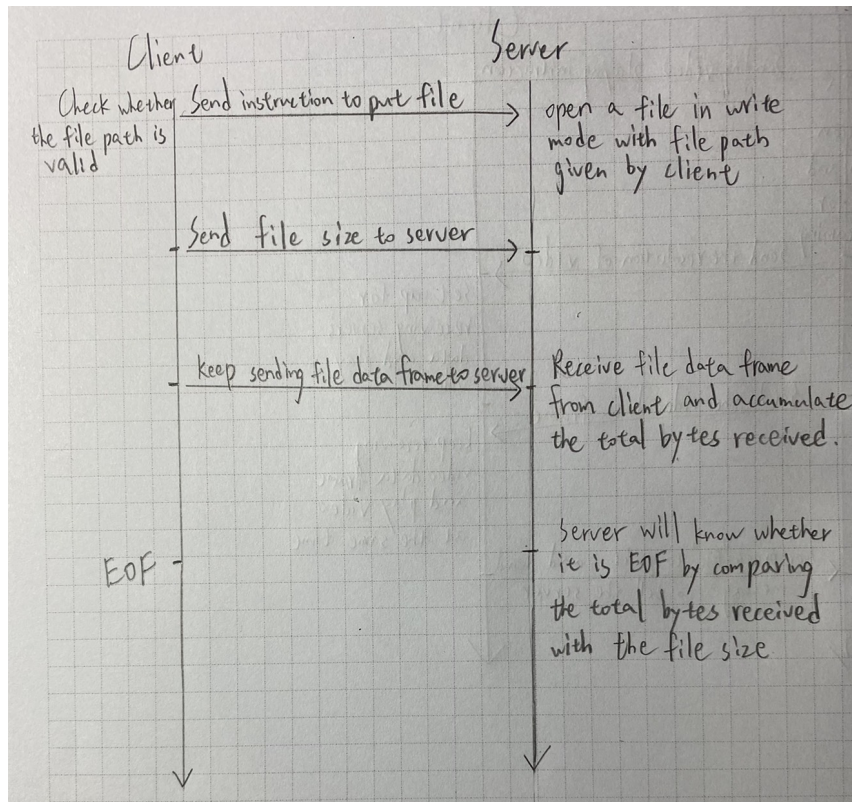 Client
Server
Check whether
the file path is
valid
Send instruction to put file
open a file in write
mode with file path
given by client
Send file size to server
keep sending file data frame to server
Receive file data frame
from client and accumulate
the total bytes received.
EOF
Server will know whether
it is EOF by comparing
the total bytes received
with the file size